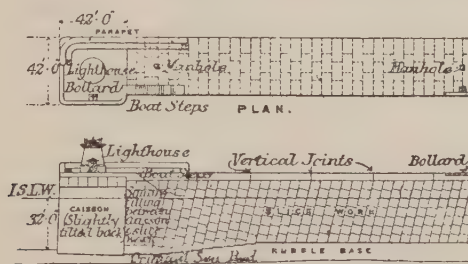 42'. 0"
PARAPET
42'. 0"
Lighthouse
Manhole
Manhole
Bollards
Boat Steps
PLAN.
Lighthouse
Vertical Joints
Bollard
Boat Steps
I.S.L.W.
CAISSON
(Slightly
tilted back)
32'. 0"
Squaring
filling
between
Caisson
& slice
work
SLICE WORK
RUBBLE BASE
Original Sea Bed